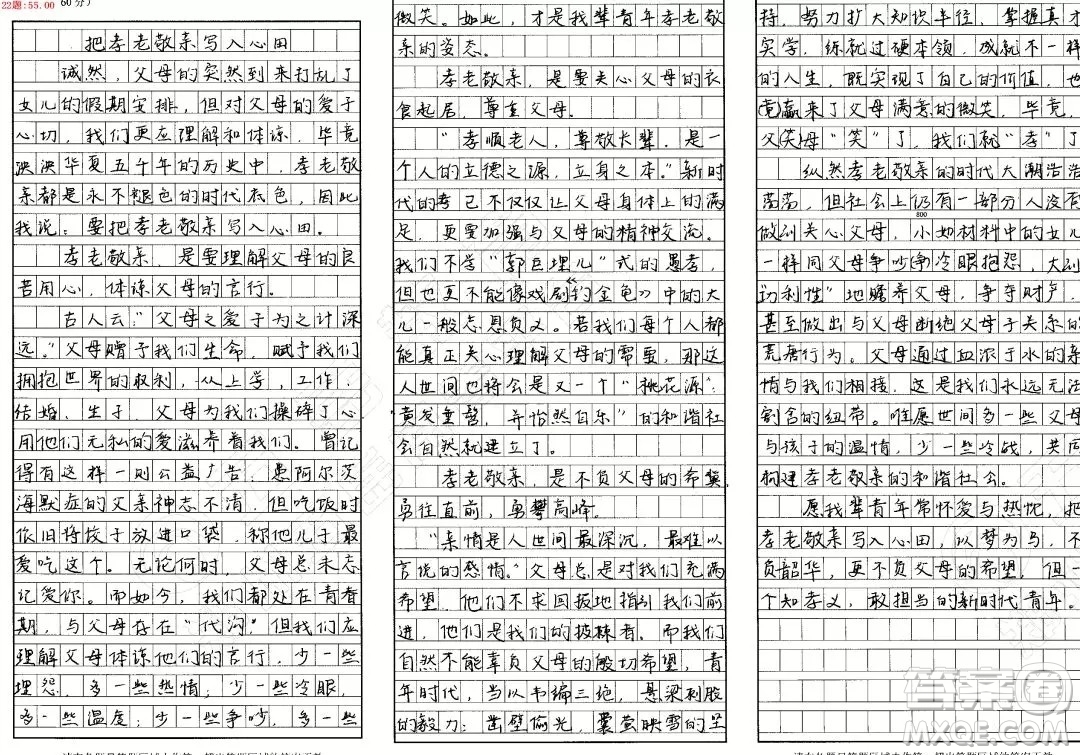 22题:55.00 60分)
把孝老敬亲写入心田
诚然，父母的突然到来打乱了
女儿的假期安排，但对父母的爱子
心切，我们更应理解和体谅，毕竟
泱泱华夏五千年的历史中，孝老敬
亲都是永不褪色的时代底色，因此
我说：要把孝老敬亲写入心田。
孝老敬亲，是要理解父母的良
苦用心，体谅父母的言行。
古人云："父母之爱子为之计深
远。"父母赠予我们生命，赋予我们
拥抱世界的权利，从上学，工作，
结婚，生子，父母为我们操碎了心
用他们无私的爱滋养着我们。曾记
得有这样一则公益广告：患阿尔茨
海默症的父亲神志不清，但吃饭时
依旧将饺子放进口袋，称他儿子最
爱吃这个。无论何时，父母总未忘
记爱你。而如今，我们都处在青春
期，与父母存在"代沟"，但我们应
理解父母体谅他们的言行，少一些
埋怨，多一些热情；少一些冷眼，
多一些温度；少一些争吵，多一些
微笑。如此，才是我辈青年孝老敬
亲的姿态。
孝老敬亲，是要关心父母的衣
食起居，尊重父母。
"孝顺老人，尊敬长辈，是一
个人的立德之源，立身之本。"新时
代的孝已不仅仅让父母身体上的满
足，更要加强与父母的精神交流。
我们不学"郭巨埋儿"式的愚孝，
但也更不能像戏剧《钓金龟》中的大
儿一般忘恩负义。若我们每个人都
能真正关心理解父母的需要，那这
人世间也将会是又一个"桃花源"：
"黄发垂髫，并怡然自乐"的和谐社
会自然就建立了。
孝老敬亲，是不负父母的希冀，
勇往直前，勇攀高峰。
"亲情是人世间最深沉，最难以
言说的感情。"父母总是对我们充满
希望，他们不求回报地指引我们前
进，他们是我们的披棘者。而我们
自然不能辜负父母的殷切希望，青
年时代，当以韦编三绝，悬梁刺股
的毅力；凿壁偷光，囊萤映雪的坚
持，努力扩大知识半径，掌握真才
实学，练就过硬本领，成就不一样
的人生，既实现了自己的价值，也
(竞)赢来了父母满意的微笑，毕竟，
父(笑)母"笑"了，我们就"孝"了
纵然孝老敬亲的时代大潮浩浩
荡荡，但社会上仍有一部分人没有
800
做到关心父母，小如材料中的女儿
一样同父母争吵争冷眼抱怨，大到
"功利性"地赡养父母，争夺财产，
甚至做出与父母断绝父子关系的
荒唐行为。父母通过血浓于水的亲
情与我们相接，这是我们永远无法
割舍的纽带。唯愿世间多一些父母
与孩子的温情，少一些冷战，共同
构建孝老敬亲的和谐社会。
愿我辈青年常怀爱与热忱，把
孝老敬亲写入心田，以梦为马，不
负韶华，更不负父母的希望，但一
个知孝义，敢担当的新时代青年。
答案圈